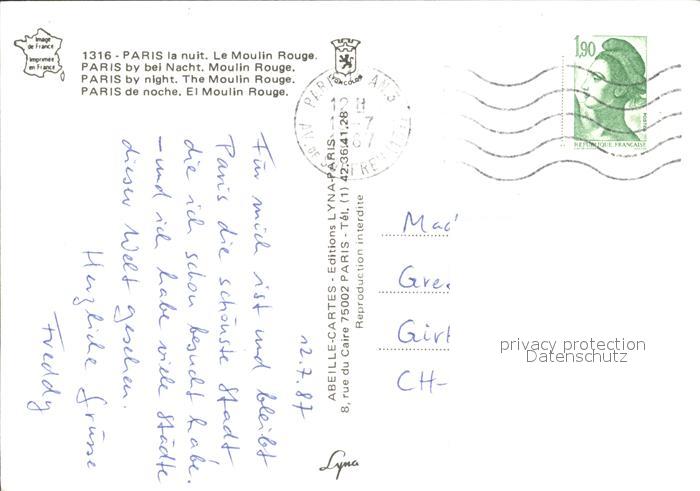 Image
de France
Imprimée
en France
1316 - PARIS la nuit. Le Moulin Rouge.
PARIS by bei Nacht. Moulin Rouge.
PARIS by night. The Moulin Rouge.
PARIS de noche. El Moulin Rouge.
1,90
REPUBLIQUE FRANÇAISE
12.7.87
Für mich ist und bleibt
Paris die schönste Stadt
die ich schon besucht habe.
– und ich habe viele Städte
dieser Welt gesehen.
Herzliche Grüsse
Freddy
ABEILLE-CARTES - Editions LYNA-PARIS
8, rue du Caire 75002 PARIS - Tél. (1) 42.36.41.28
Reproduction interdite
Lyna
CH-
privacy protection
Datenschutz